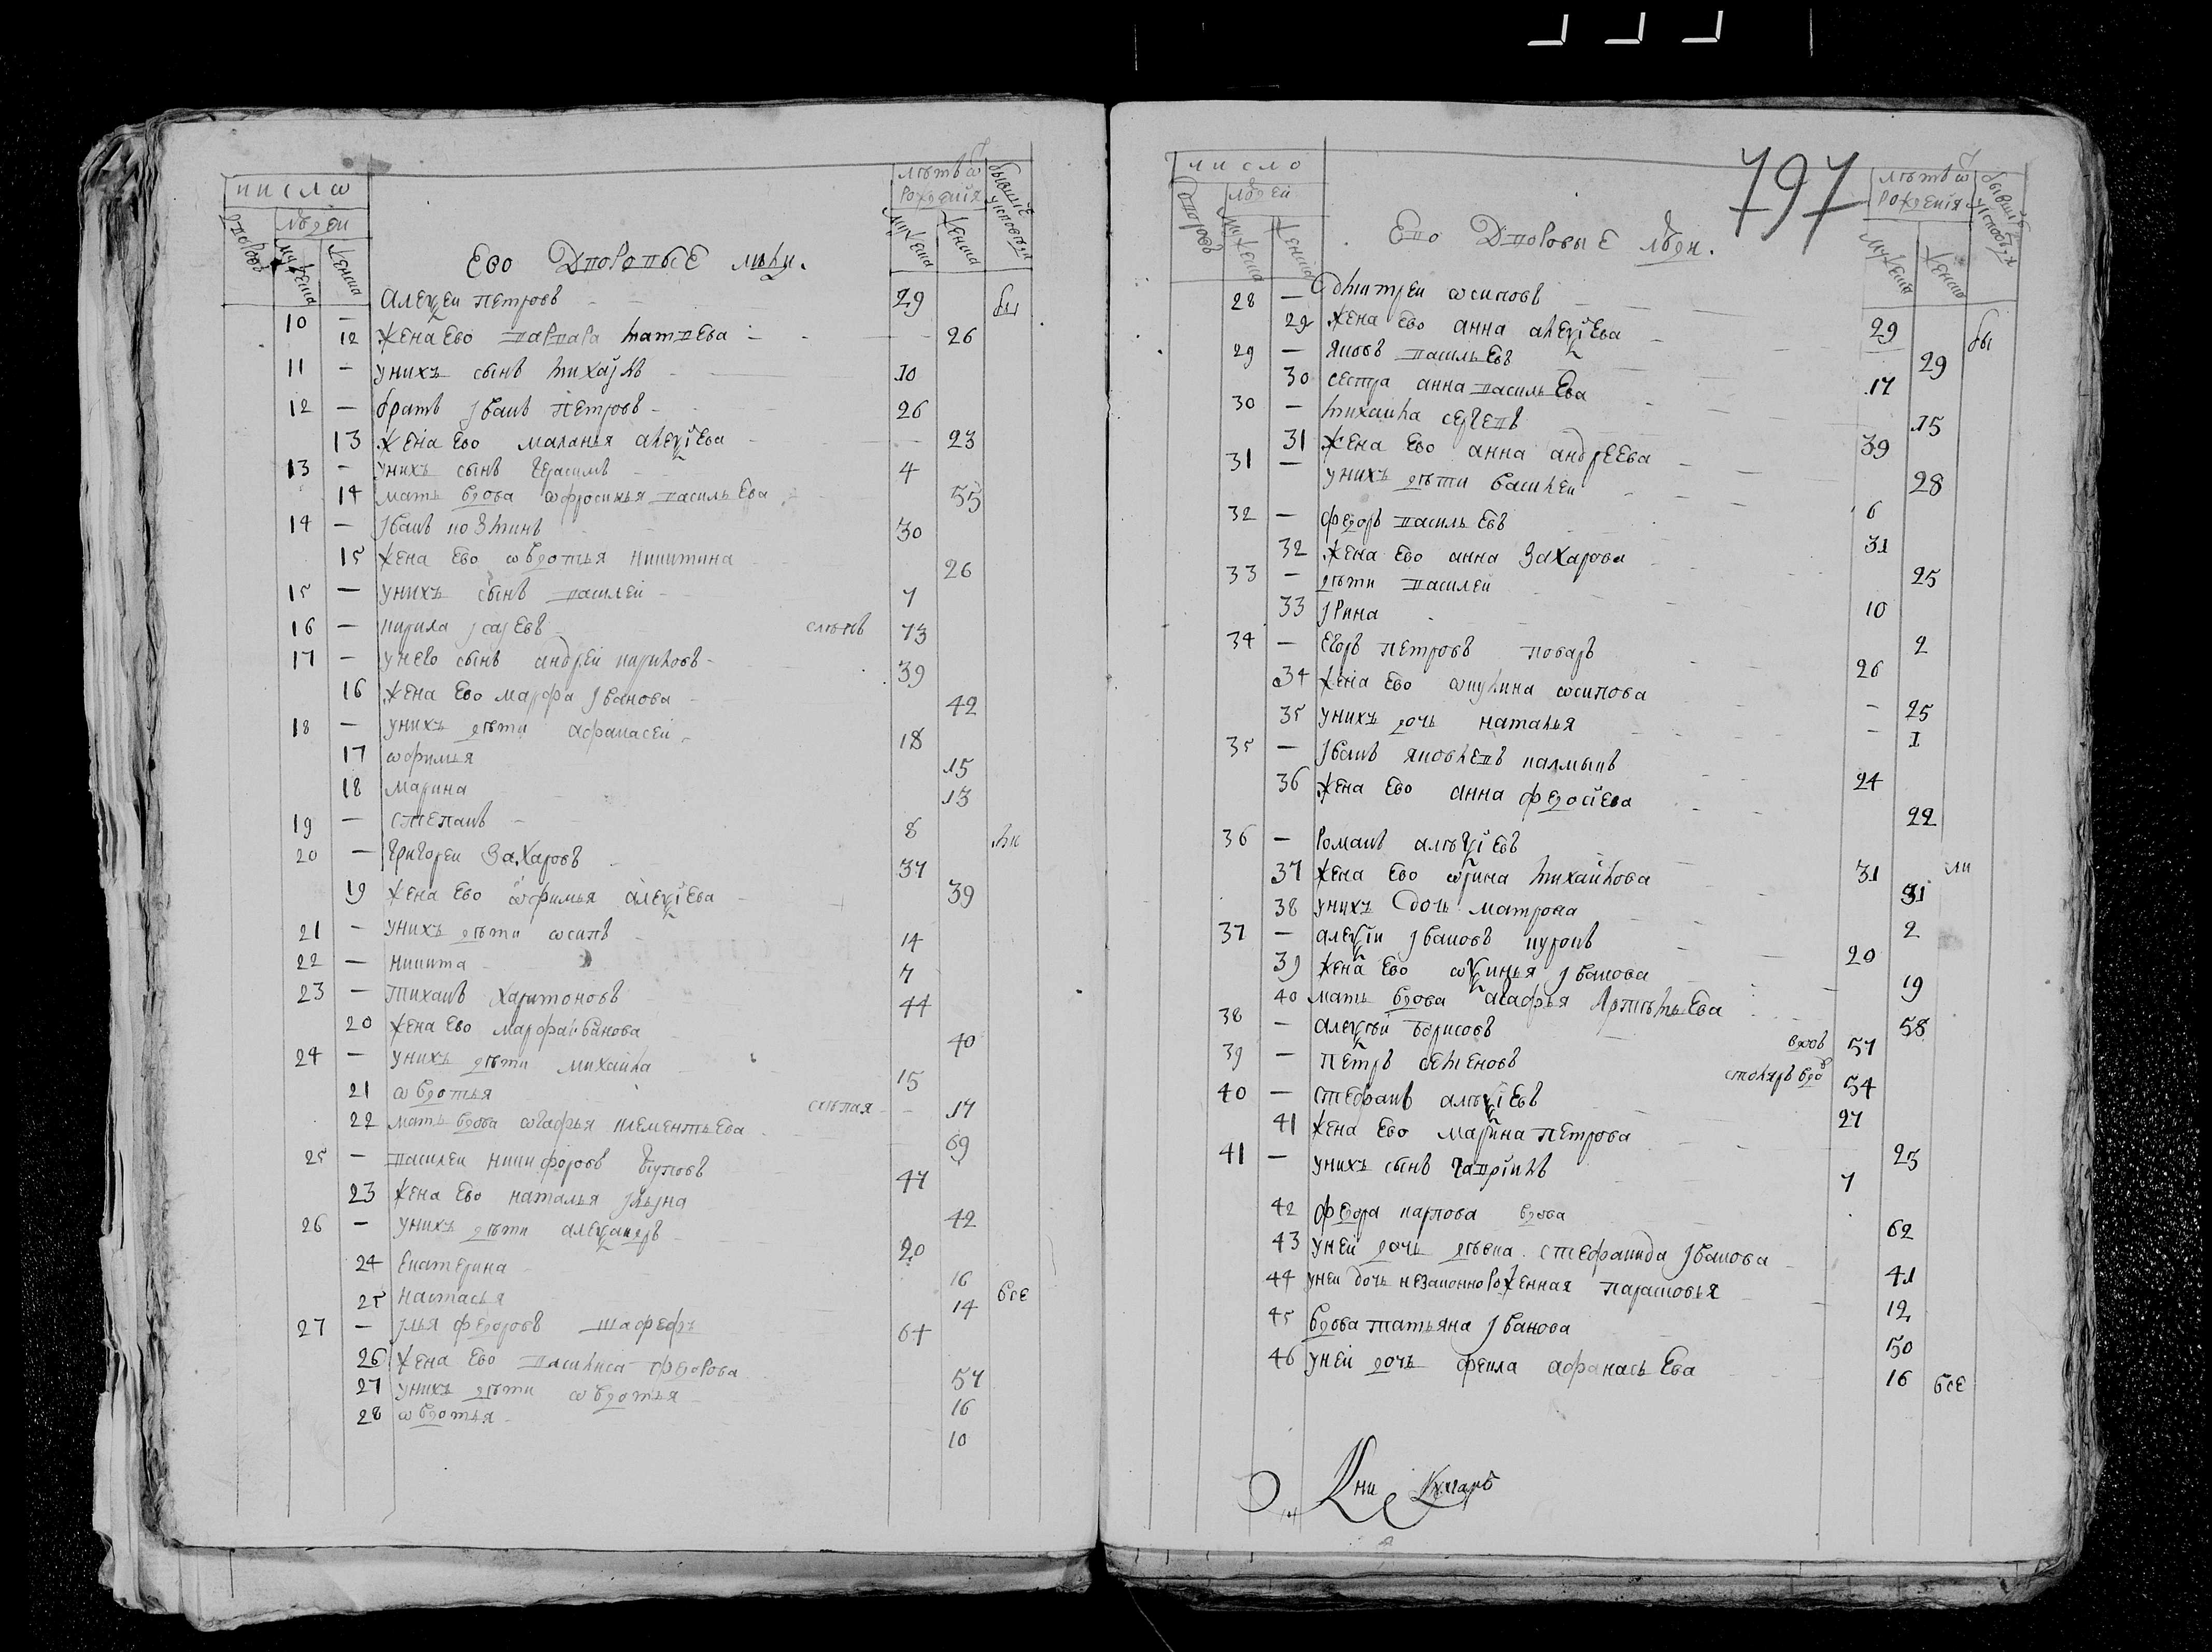 число
людеи
дворовъ
мужеска
женска
Ево Дворовые люди.
лѣтъ ѿ
рождения
мужеска
женска
бывшие у исповеди
10 — Алеѯеи петровъ 29 бы
12 жена Ево варвара матвева 26
11 — у нихъ сынъ михаjлъ 10
12 — братъ jванъ петровъ 26
13 жена Ево маланья алеѯiева 23
13 — у нихъ сынъ герасимъ 4
14 мать вдова ѡфросинья василь Ева 55
14 — jванъ козминъ 30
15 жена Ево ѡвдотья никитина 26
15 — у нихъ сынъ василеи 7
16 — кирила jсаjевъ слѣпъ 73
17 — у нево сынъ андреи кириловъ 39
16 жена Ево марфа jванова 42
18 — у нихъ дѣти афанасеи 18
17 ѡфимья 15
18 марина 13
19 — степанъ 8 ли
20 — григореи захаровъ 37
19 жена Ево ѡфимья алеѯiева 39
21 — у нихъ дѣти ѡсипъ 14
22 — никита 7
23 — тиханъ харитоновъ 44
20 жена Ево марфа iванова 40
24 — у нихъ дѣти михаила 15
21 ѡвдотья 17
22 мать вдова ѡгафья клементьева слѣпая 69
25 — василеи никифоровъ 47
23 жена Ево наталья jльjна 42
26 — у нихъ дѣти алеѯандръ 20
24 Екатерина 16
25 настасья 14 все
27 — jлья федоровъ 64
26 жена Ево василиса федорова 57
27 у нихъ дѣти ѡвдотья 16
28 ѡвдотья 10
797
число
людеи
дворовъ
мужеска
женска
Ево Дворовые люди.
лѣтъ ѿ
рождения
мужеска
женска
бывшие у исповеди
28 — Дмитреи ѡсиповъ 29 бы
29 жена Ево анна алеѯiева 29
29 — яковъ васильевъ 17
30 сестра анна васильева 15
30 — михаила сергевъ 39
31 жена Ево анна андреева 28
31 — у нихъ дѣти василеи 6
32 — федоръ васильевъ 31
32 жена Ево анна захарова 25
33 — дѣти василеи 10
33 jрина 2
34 — егоръ петровъ поваръ 26
34 жена Ево ѡкулина ѡсипова — 25
35 у нихъ дочь наталья — 1
35 — jванъ яковлевъ калмыкъ 24
36 жена Ево анна федосiева 22
36 — романъ алѣѯiевъ 31 ли
37 жена Ево ѡрина михаилова 31
38 у нихъ дочь матрона 2
37 — алеѯiи jвановъ 20
39 жена Ево ѡѯинья jванова 19
40 мать вдова агафья Артѣмьева 58
38 — алеѯѣи борисовъ вдов 57
39 — петръ семеновъ столяръ вдо 54
40 — стефанъ алѣѯiевъ 27
41 жена Ево марина петрова 25
41 — у нихъ сынъ гаврiилъ 7
42 федора карпова вдова 62
43 у неи дочь дѣвка стефанида jванова 41
44 у неи дочь незаконнорожденная парасковья 12
45 вдова татьяна jванова 50
46 у неи дочь фекла афанасьева 16 все